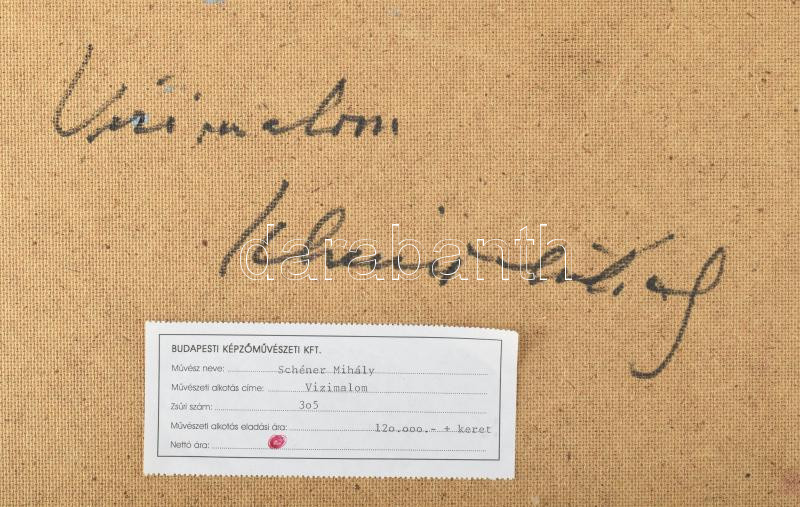 Vizimalom
Schéner Mihály
darabanth
BUDAPESTI KÉPZŐMŰVÉSZETI KFT.
Művész neve: Schéner Mihály
Művészeti alkotás címe: Vizimalom
Zsűri szám: 3o5
Művészeti alkotás eladási ára: 12o.ooo.- + keret
Nettó ára: